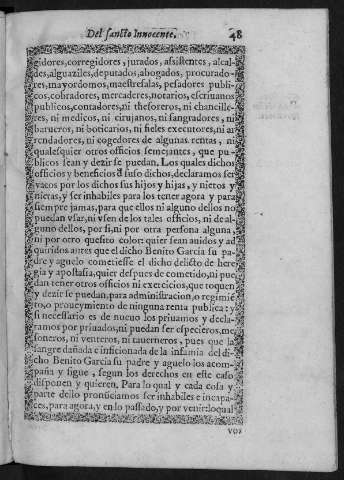 Del sancto Innocente.
48
gidores, corregidores, jurados, assistentes, alcal-
des, alguaziles, deputados, abogados, procurado-
res, mayordomos, maestresalas, pesadores publi-
cos, cobradores, mercaderes, notarios, escriuanos
publicos, contadores, ni thesoreros, ni chancille-
res, ni medicos, ni cirujanos, ni sangradores, ni
barueros, ni boticarios, ni fieles executores, ni ar
rendadores, ni cogedores de algunas rentas, ni
qualesquier otros officios semejantes, que pu-
blicos sean y dezir se puedan. Los quales dichos
officios y beneficios d suso dichos, declaramos ser
vacos por los dichos sus hijos y hijas, y nietos y
nietas, y ser inhabiles para los tener agora y para
siempre jamas, para que ellos ni alguno dellos no
puedan vsar, ni vsen de los tales officios, ni de al-
guno dellos, por si, ni por otra persona alguna,
ni por otro quesito color: quier sean auidos y ad
quiridos antes que el dicho Benito Garcia su pa-
dre y aguelo cometiesse el dicho delicto de here-
gia y apostasia, quier despues de cometido, ni pue
dan tener otros officios ni exercicios, que toquen
y dezir se puedan, para administracion, o regimiē
to, o proueymiento de ninguna renta publica: y
si necessario es de nueuo los priuamos y decla-
ramos por priuados, ni puedan ser especieros, me
soneros, ni venteros, ni tauerneros, pues que la
sangre dañada e inficionada de la infamia del di-
cho Benito Garcia su padre y aguelo los acom-
paña y sigue, segun los derechos en este caso
disponen y quieren, Para lo qual y cada cosa y
parte dello pronūciamos ser inhabiles e incapa-
ces, para agora, y en lo passado, y por venir: lo qual
vos